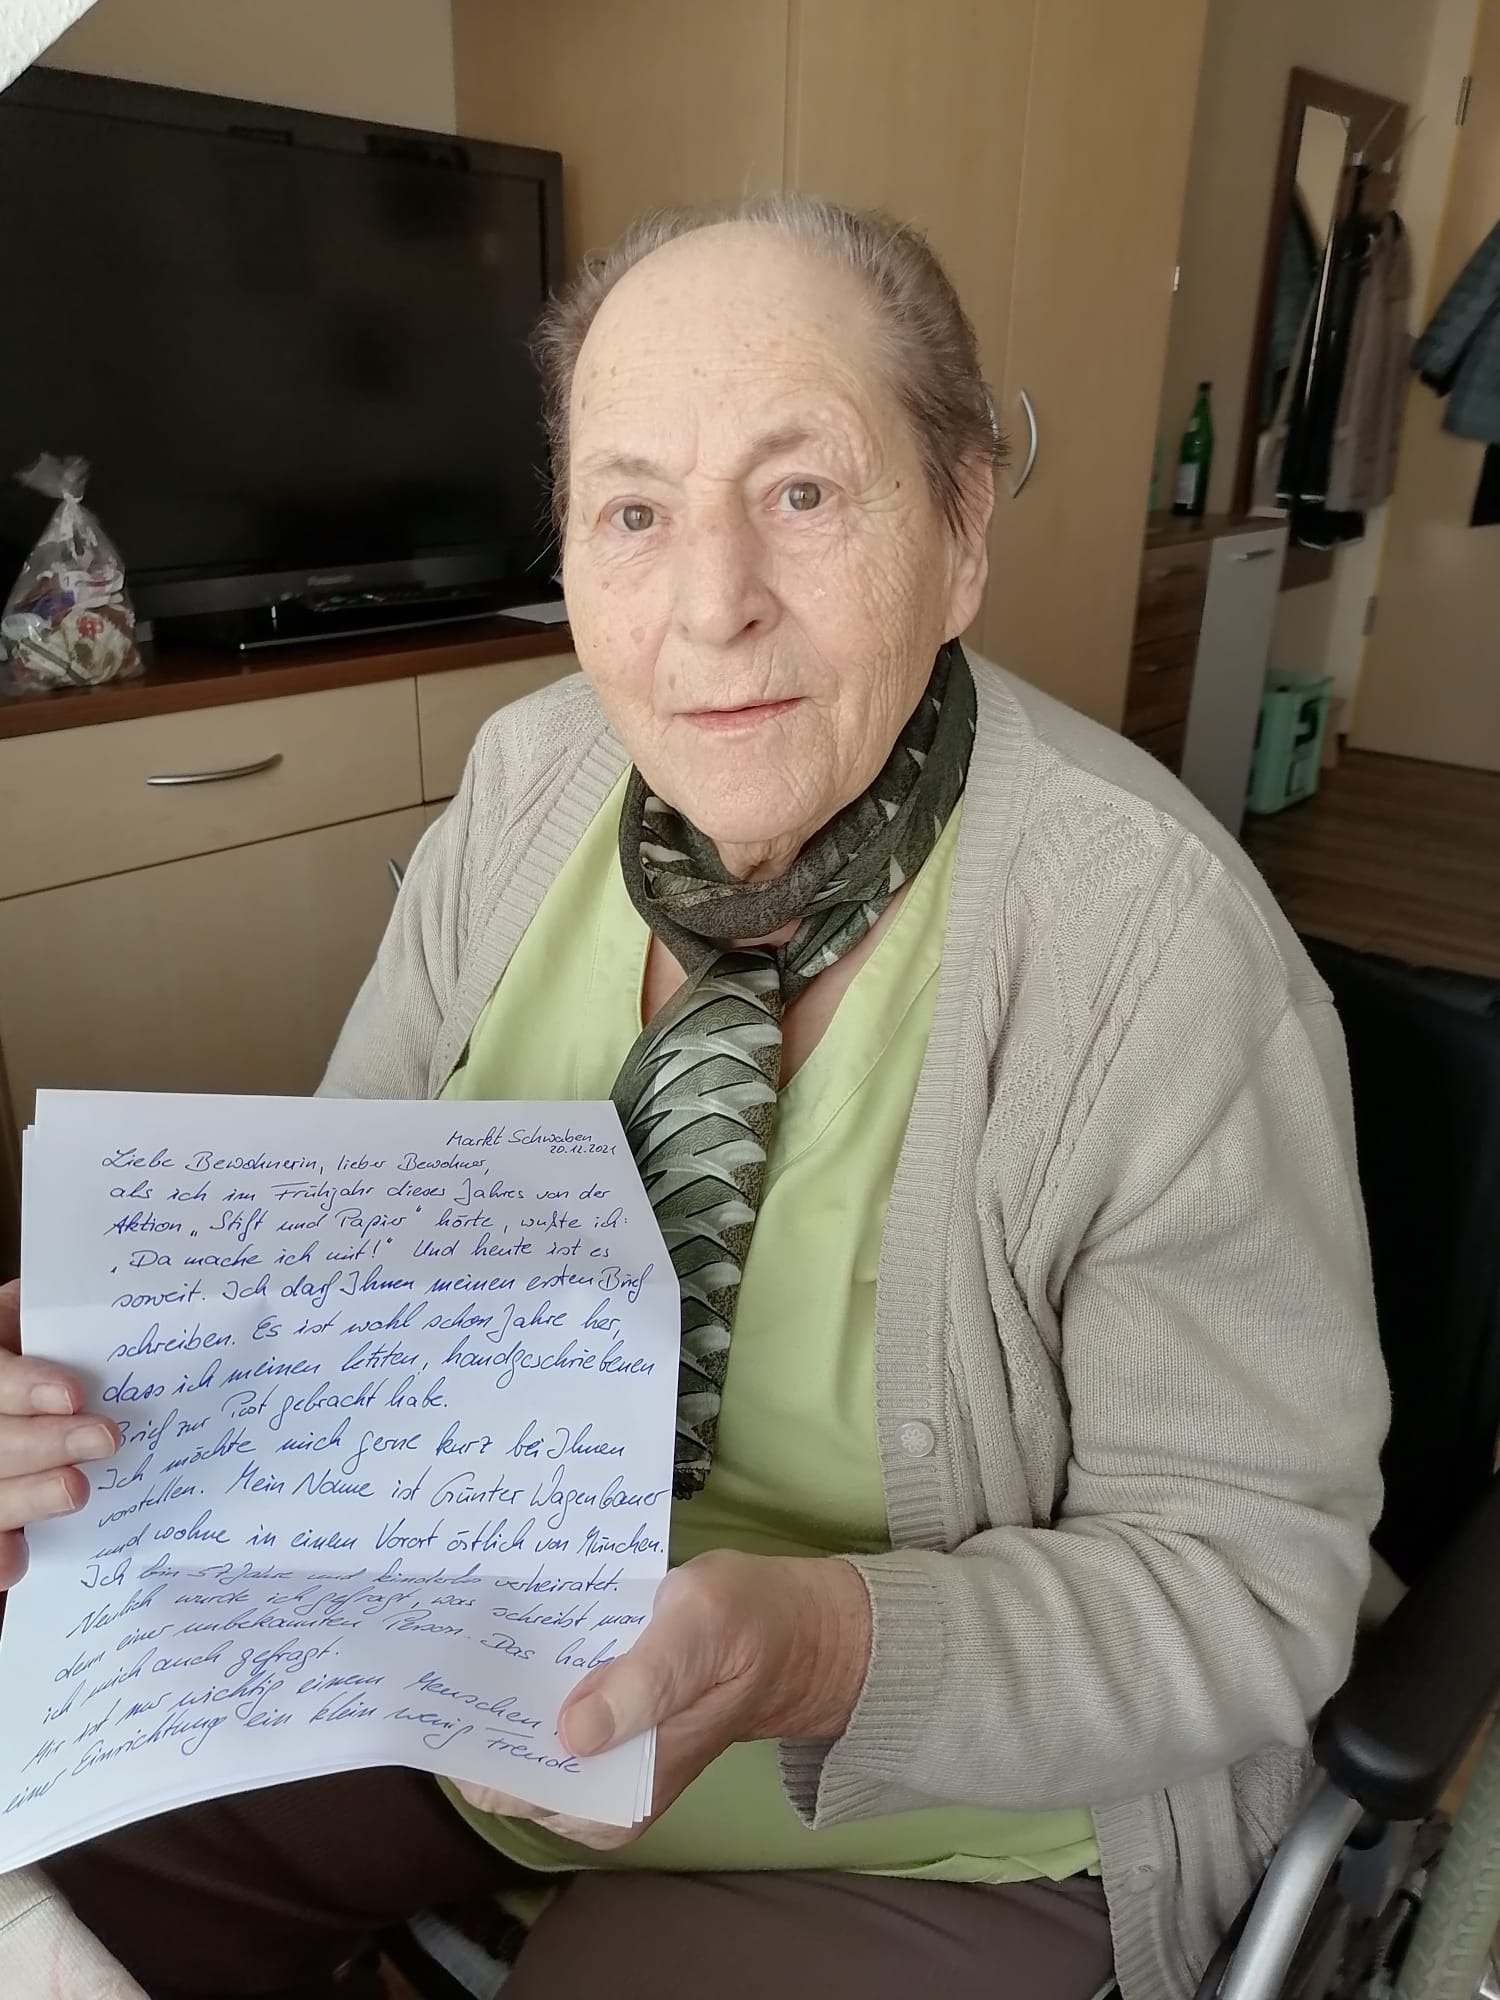 Panasonic
Markt Schwaben
20.12.2021
Liebe Bewohnerin, lieber Bewohner,
als ich im Frühjahr dieses Jahres von der
Aktion „Stift und Papier" hörte, wußte ich:
„Da mache ich mit!" Und heute ist es
soweit. Ich darf Ihnen meinen ersten Brief
schreiben. Es ist wohl schon Jahre her,
dass ich meinen letzten, handgeschriebenen
Brief zur Post gebracht habe.
Ich möchte mich gerne kurz bei Ihnen
vorstellen. Mein Name ist Günter Wagenbauer
und wohne in einem Vorort östlich von München.
Ich bin 57 Jahre und kinderlos verheiratet.
Neulich wurde ich gefragt, was schreibt man
denn einer unbekannten Person. Das habe
ich mich auch gefragt.
Mir ist nur wichtig einem Menschen
einer Einrichtung ein klein wenig Freude